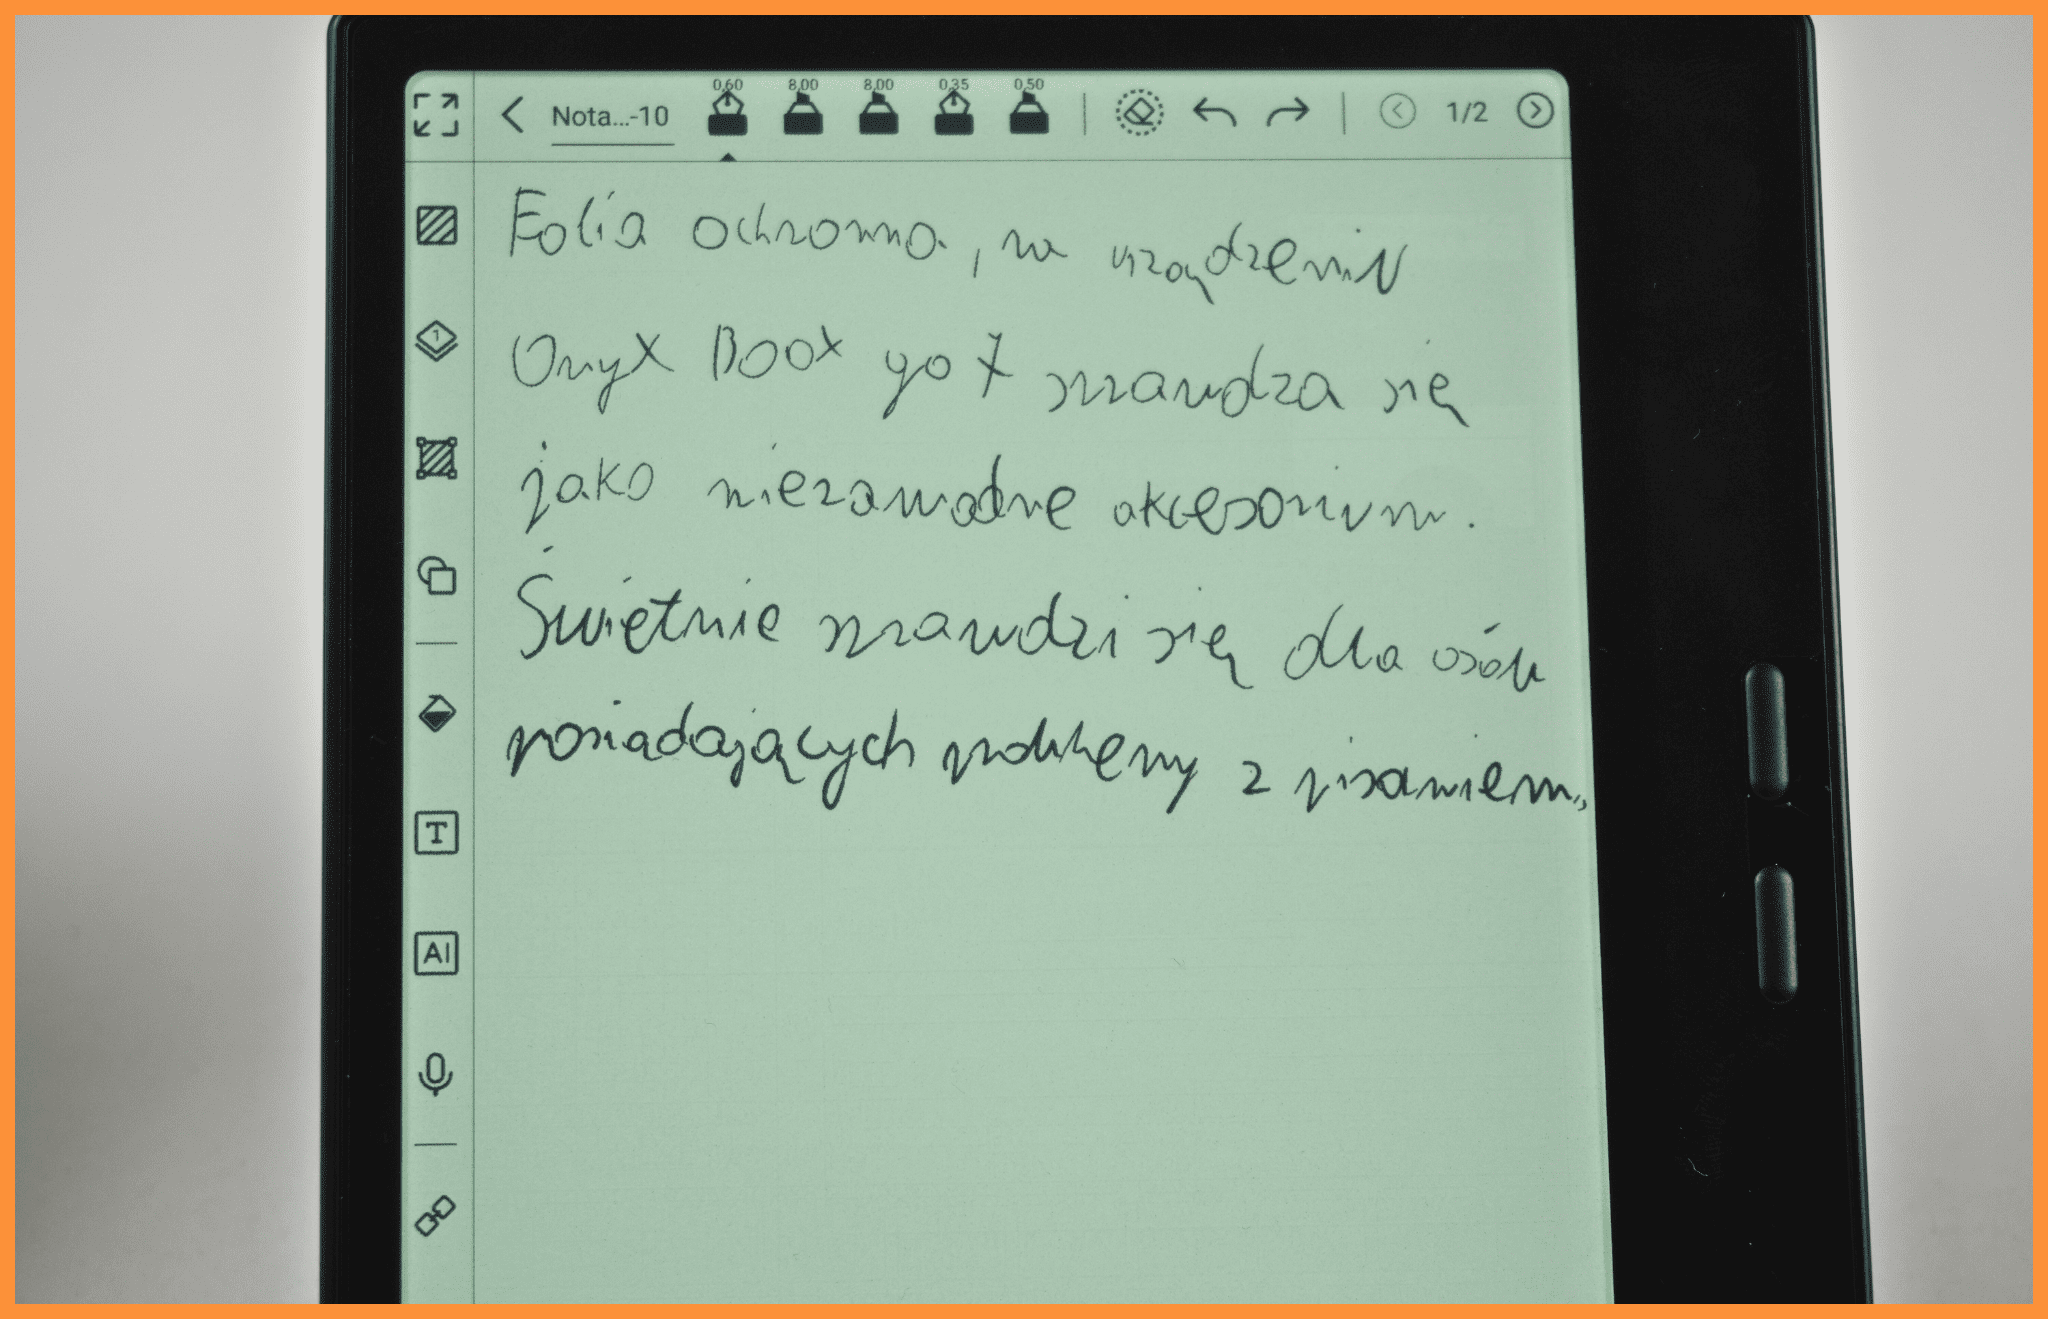 0.60 8.00 8.00 0.35 0.50
Nota...-10 1/2
Folia ochronna, na urządzeniu
Onyx Boox go 7 sprawdza się
jako niezawodne akcesorium.
Świetnie sprawdzi się dla osób
posiadających problemy z pisaniem.
1
T
AI